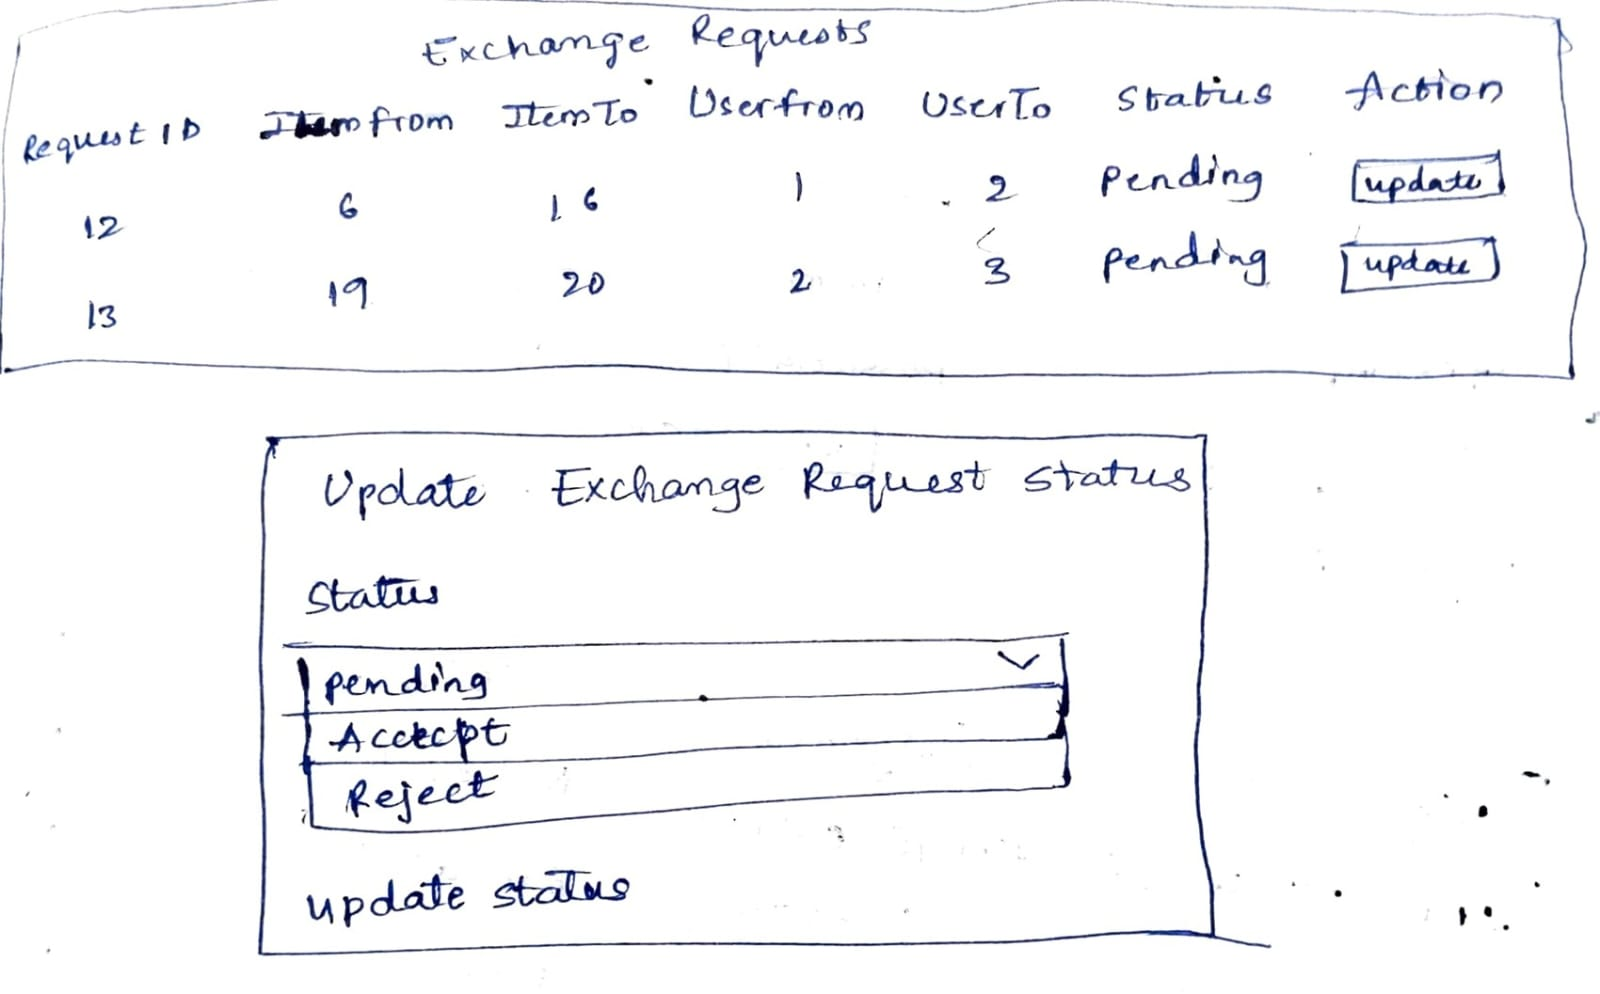 Exchange Requests
Request ID Item from Item To User from User To Status Action
12 6 16 1 2 Pending update
13 19 20 2 3 Pending update
Update Exchange Request Status
Status
pending
Accecpt
Reject
update status